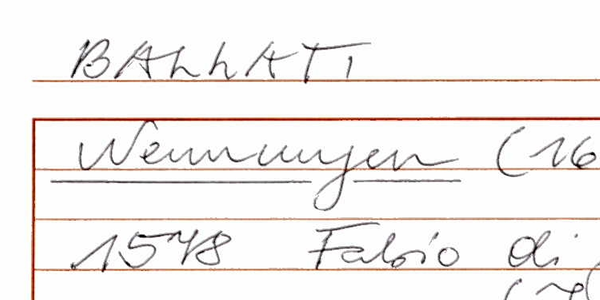 BALLATI
Nennungen (16
1578 Fabio di